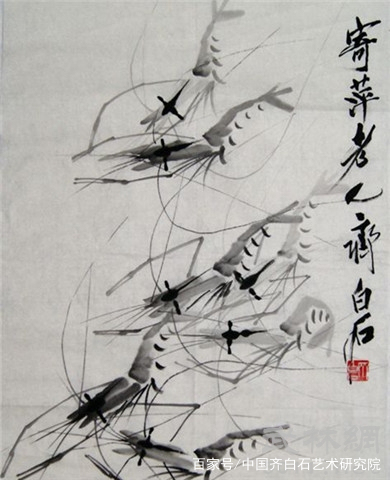 寄萍老人齊白石
百家号/中国齐白石艺术研究院